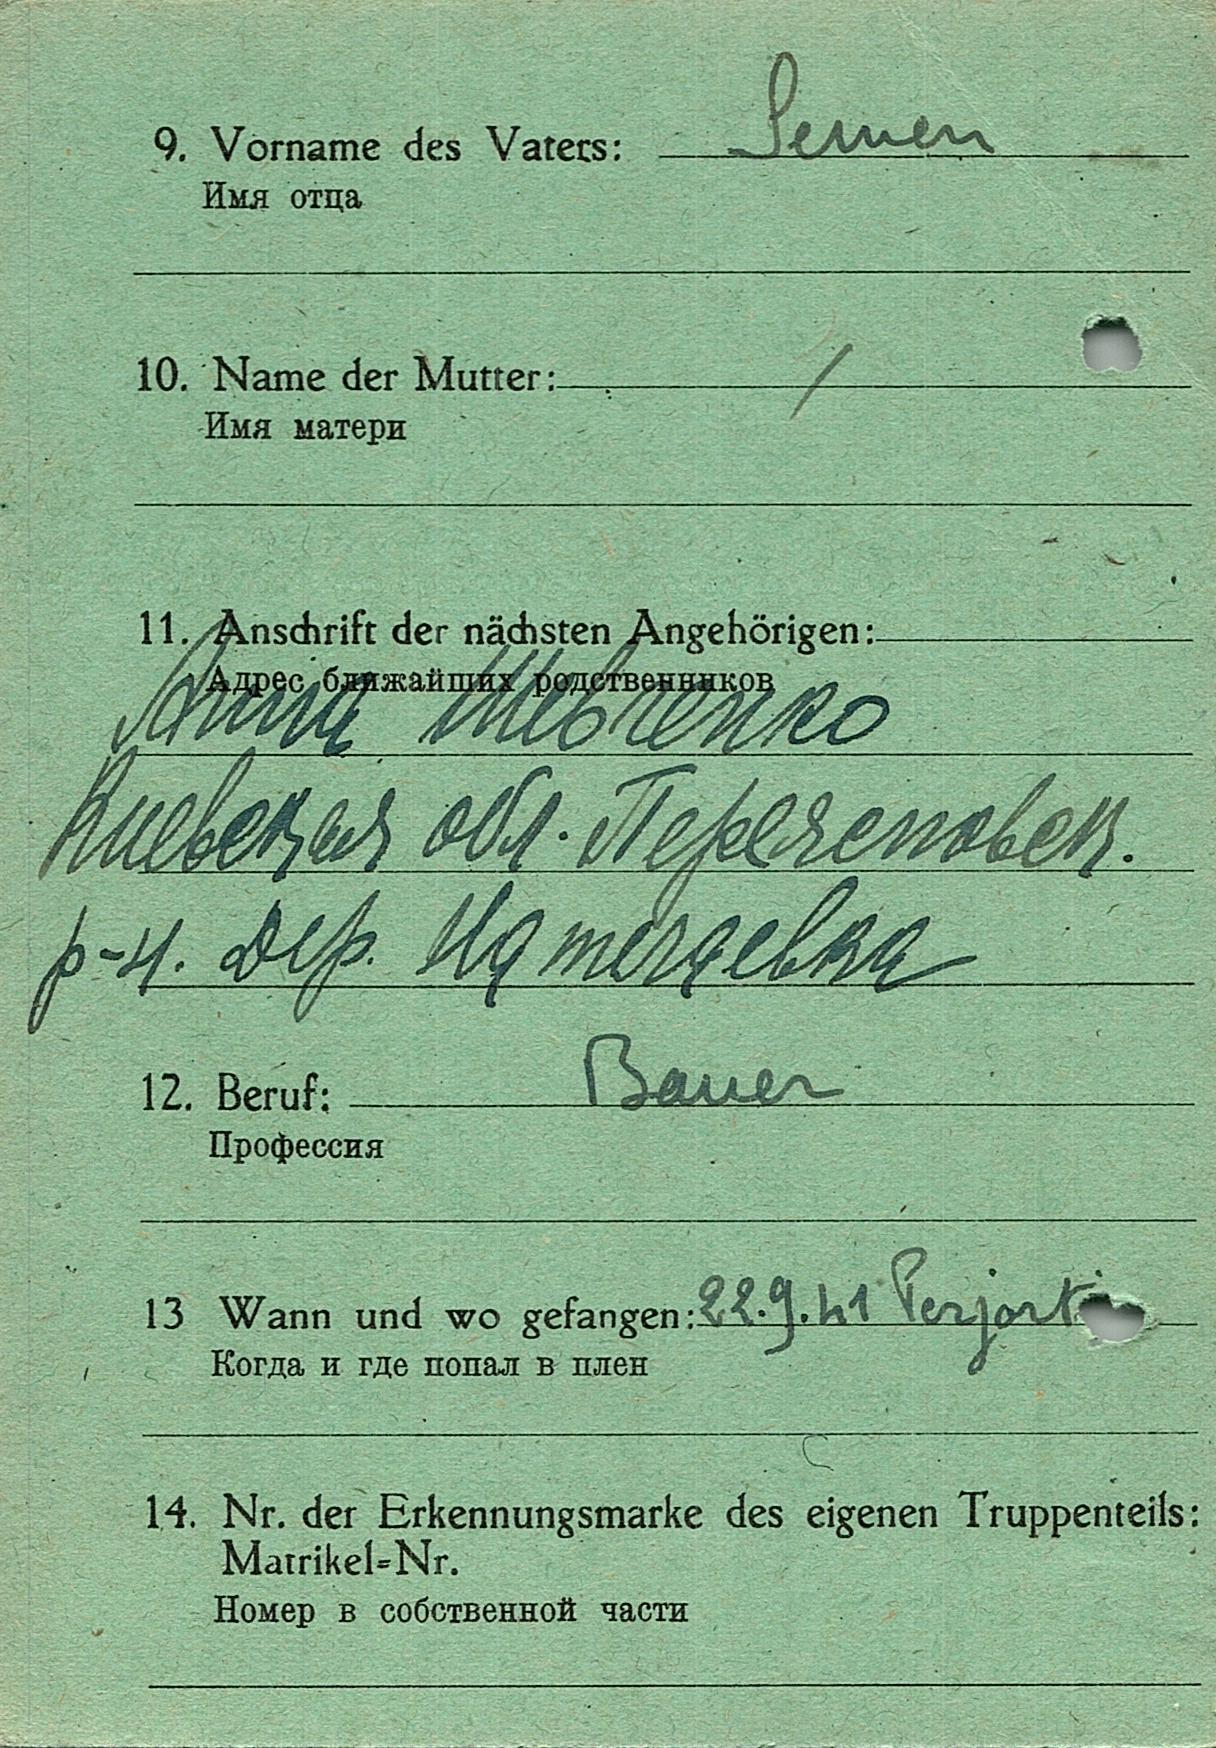 9. Vorname des Vaters: Semen
Имя отца
10. Name der Mutter: /
Имя матери
11. Anschrift der nächsten Angehörigen:
Адрес ближайших родственников
Анна Шевченко
Киевская обл.
р-н. дер.
12. Beruf: Bauer
Профессия
13 Wann und wo gefangen: 22.9.41
Когда и где попал в плен
14. Nr. der Erkennungsmarke des eigenen Truppenteils:
Matrikel=Nr.
Номер в собственной части